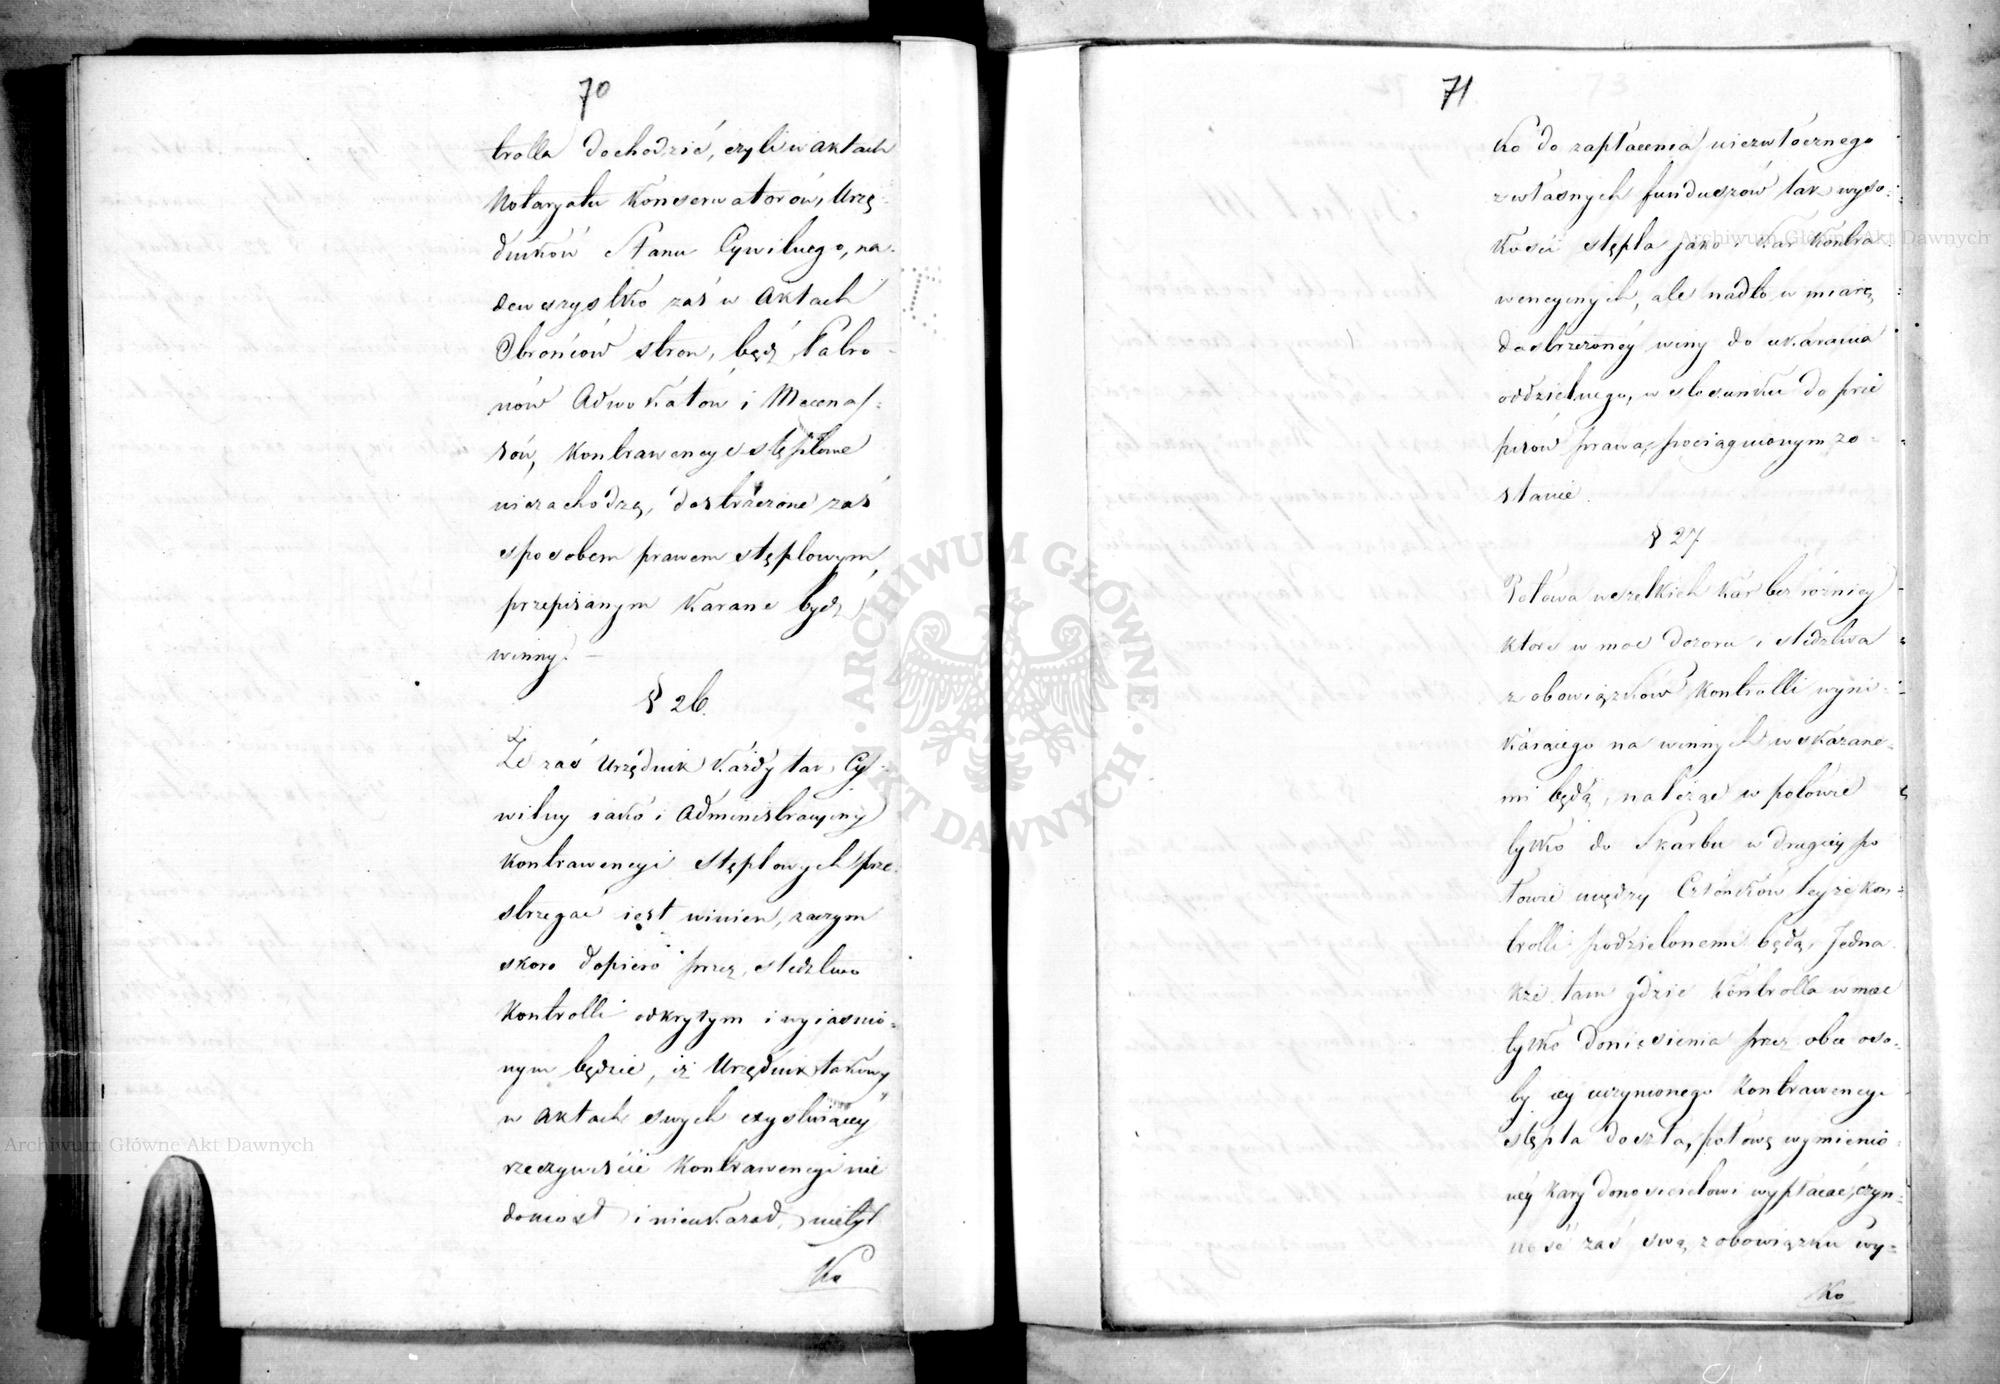 70
trolla dochodzić, czyli w aktach
Notaryatu Konserwatorów, Urzę-
dników Stanu Cywilnego, na-
dewszystko zaś w Aktach
Obrońców stron, bądź Patro-
nów Adwokatów i Mecenas-
sów, Kontrawencye stęplowe
niezachodzą, dostrzeżone zaś
sposobem prawem stęplowym,
przepisanym karane bydź
winny. —
§ 26.
Że zaś Urzędnik każdy tak Cy-
wilny iako i Administracyiny
Kontrawencyi Stęplowych prze-
strzegać iest winien, zaczym
skoro dopiero przez śledztwo
Kontrolli odkrytym i wyiaśnio-
nym będzie, iż Urzędnik takowy
w aktach swych exystuiącey
rzeczywiście Kontrawencyi nie
doniósł i nieukarał, nietyl
Ko
71
Ko do zapłacenia niezwłocznego
z własnych funduszów tak wyso-
kości stępla jako i kar Kontra-
wencyinych, ale nadto w miarę
dostrzeżonéy winy do ukarania
oddzielnego, w stosunku do prze
pisów prawa, pociągnionym zo-
stanie.
§ 27
Połowa wszelkich kar bez różnicy
które w moc dozoru i śledztwa
z obowiązków Kontrolli wyni-
kaiącego na winnych wskazane-
mi będą, należąc w połowie
tylko do Skarbu w drugiey po
łowie między Członków teyże Kon-
trolli podzielonemi będą, Jedna
kże tam gdzie Kontrolla w moc
tylko doniesienia przez obce oso-
by iey uczynionego Kontrawencyi
stępla doszła, połowę wymienio-
néy kary donosicielowi wypłacać, czyn-
ność zaś swą z obowiązku wy-
Ko
Archiwum Główne Akt Dawnych
Archiwum Główne Akt Dawnych
ARCHIWUM GŁÓWNE AKT DAWNYCH